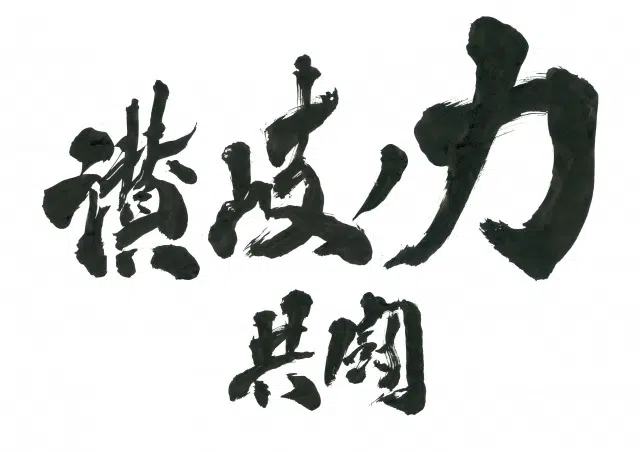 讃岐ノ力
共闘